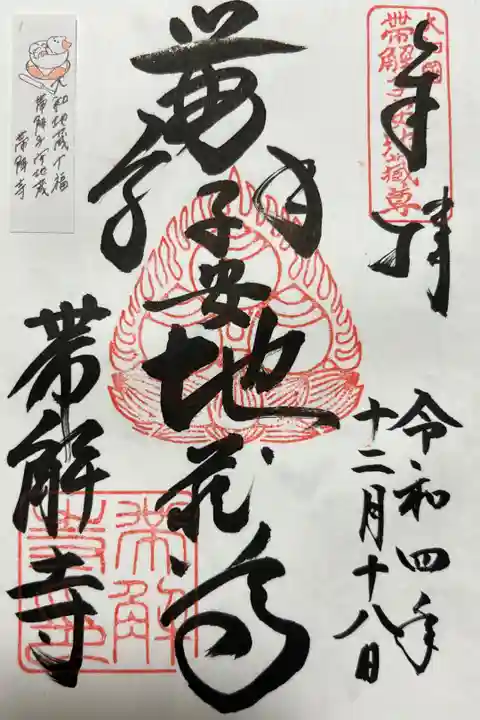 奉拝
令和四年
十二月十八日
帯解
子安地蔵尊
帯解寺
帯解子安地蔵尊
帯解寺印
大和地蔵十福
帯解子安地蔵
帯解寺